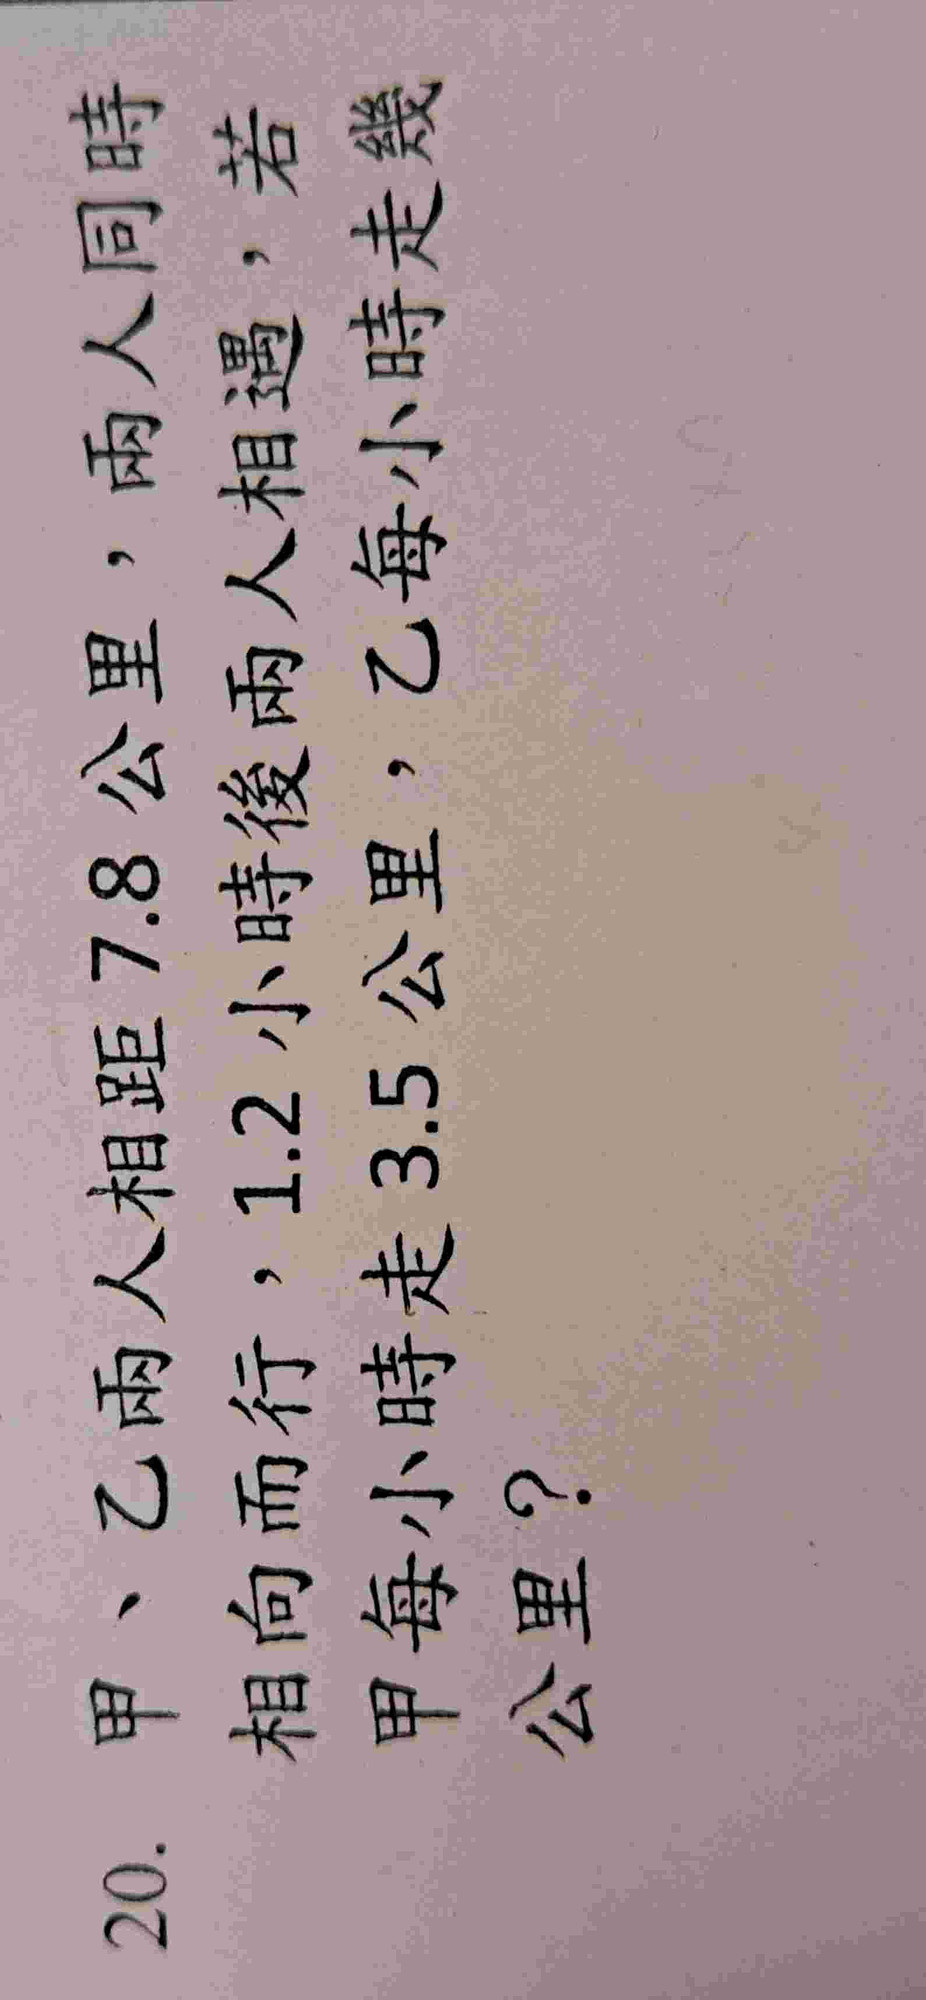 20. 甲、乙兩人相距 7.8 公里，兩人同時
相向而行，1.2 小時後兩人相遇，若
甲每小時走 3.5 公里，乙每小時走幾
公里？